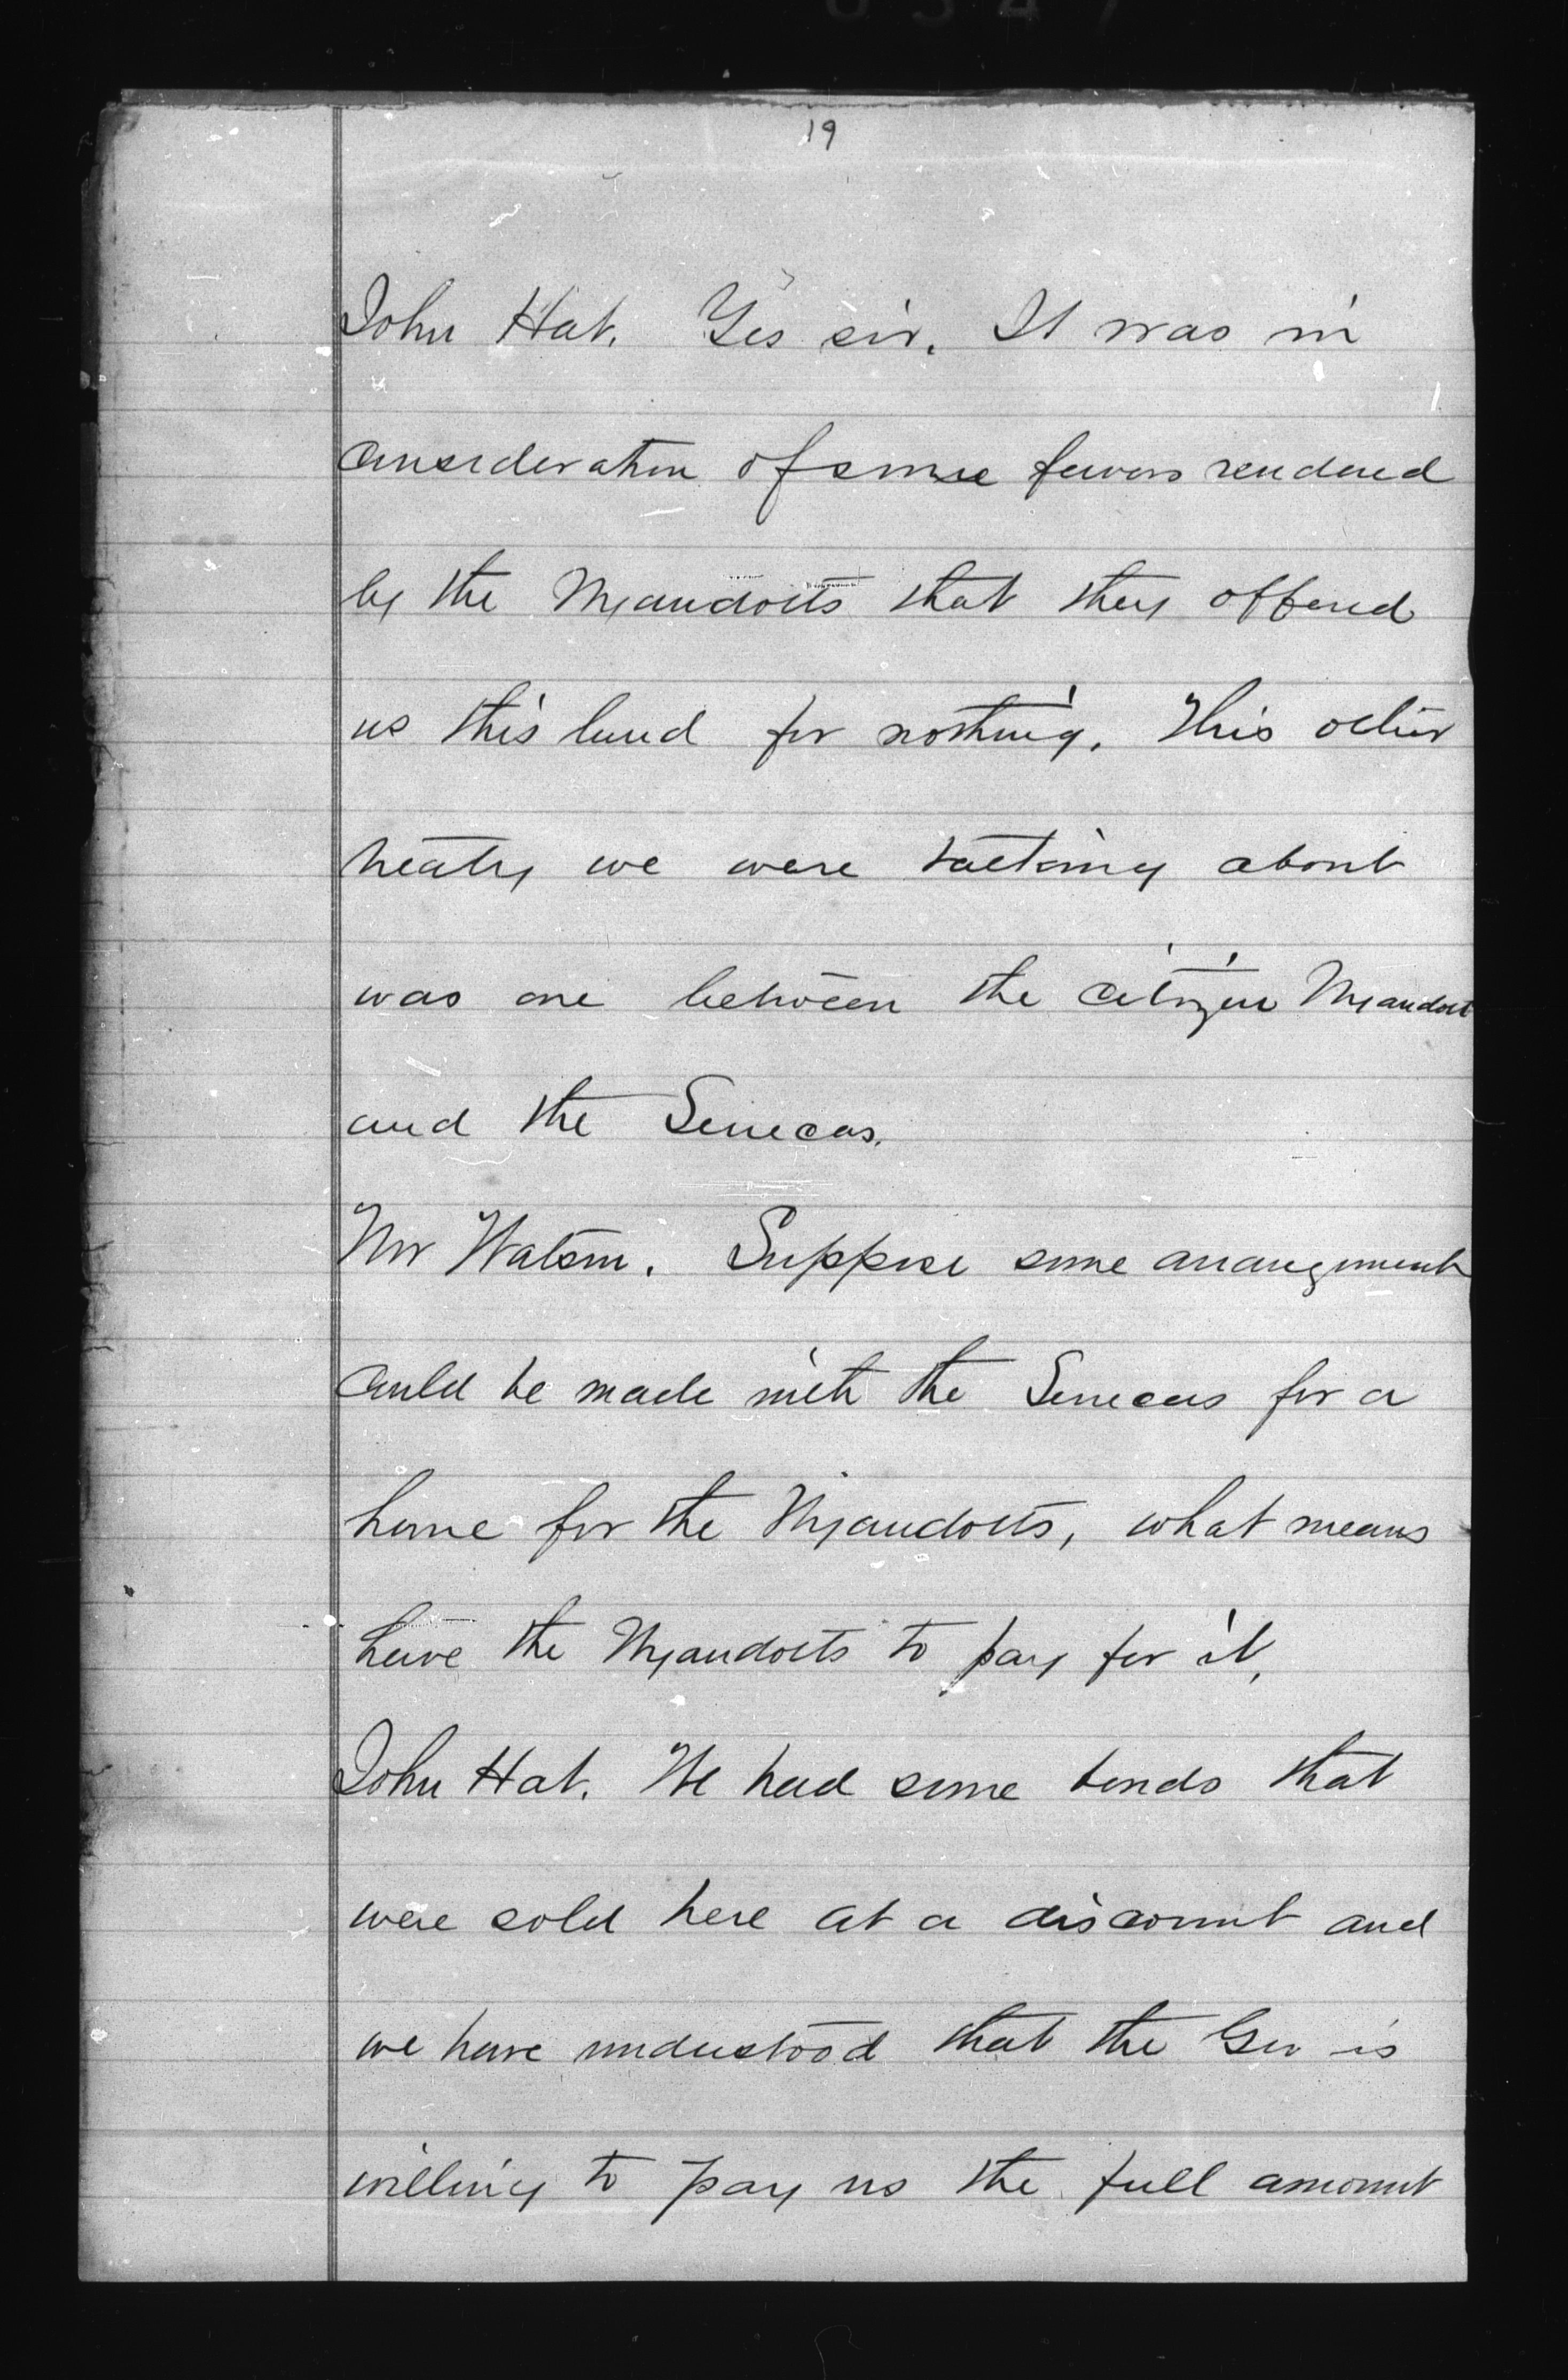 19
John Hat. Yes sir. It was in
consideration of some favors rendered
by the Wyandotts that they offered
us this land for nothing. This other
treaty we were talking about
was one between the citizen Wyandott
and the Senecas.
Mr Watson. Suppose some arrangement
could be made with the Senecas for a
home for the Wyandotts, what means
have the Wyandotts to pay for it,
John Hat. We had some bonds that
were sold here at a discount and
we have understood that the Gov is
willing to pay us the full amount